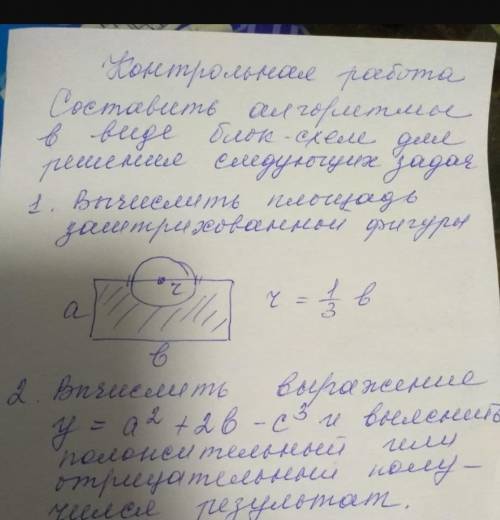 Контрольная работа
Составить алгоритмы
в виде блок-схем для
решения следующих задач
1. Вычислить площадь
заштрихованной фигуры
r
a
r = 1/3 b
b
2. Вычислить выражение
y = a² + 2b - c³ и выяснить
положительный или
отрицательный полу-
чился результат.